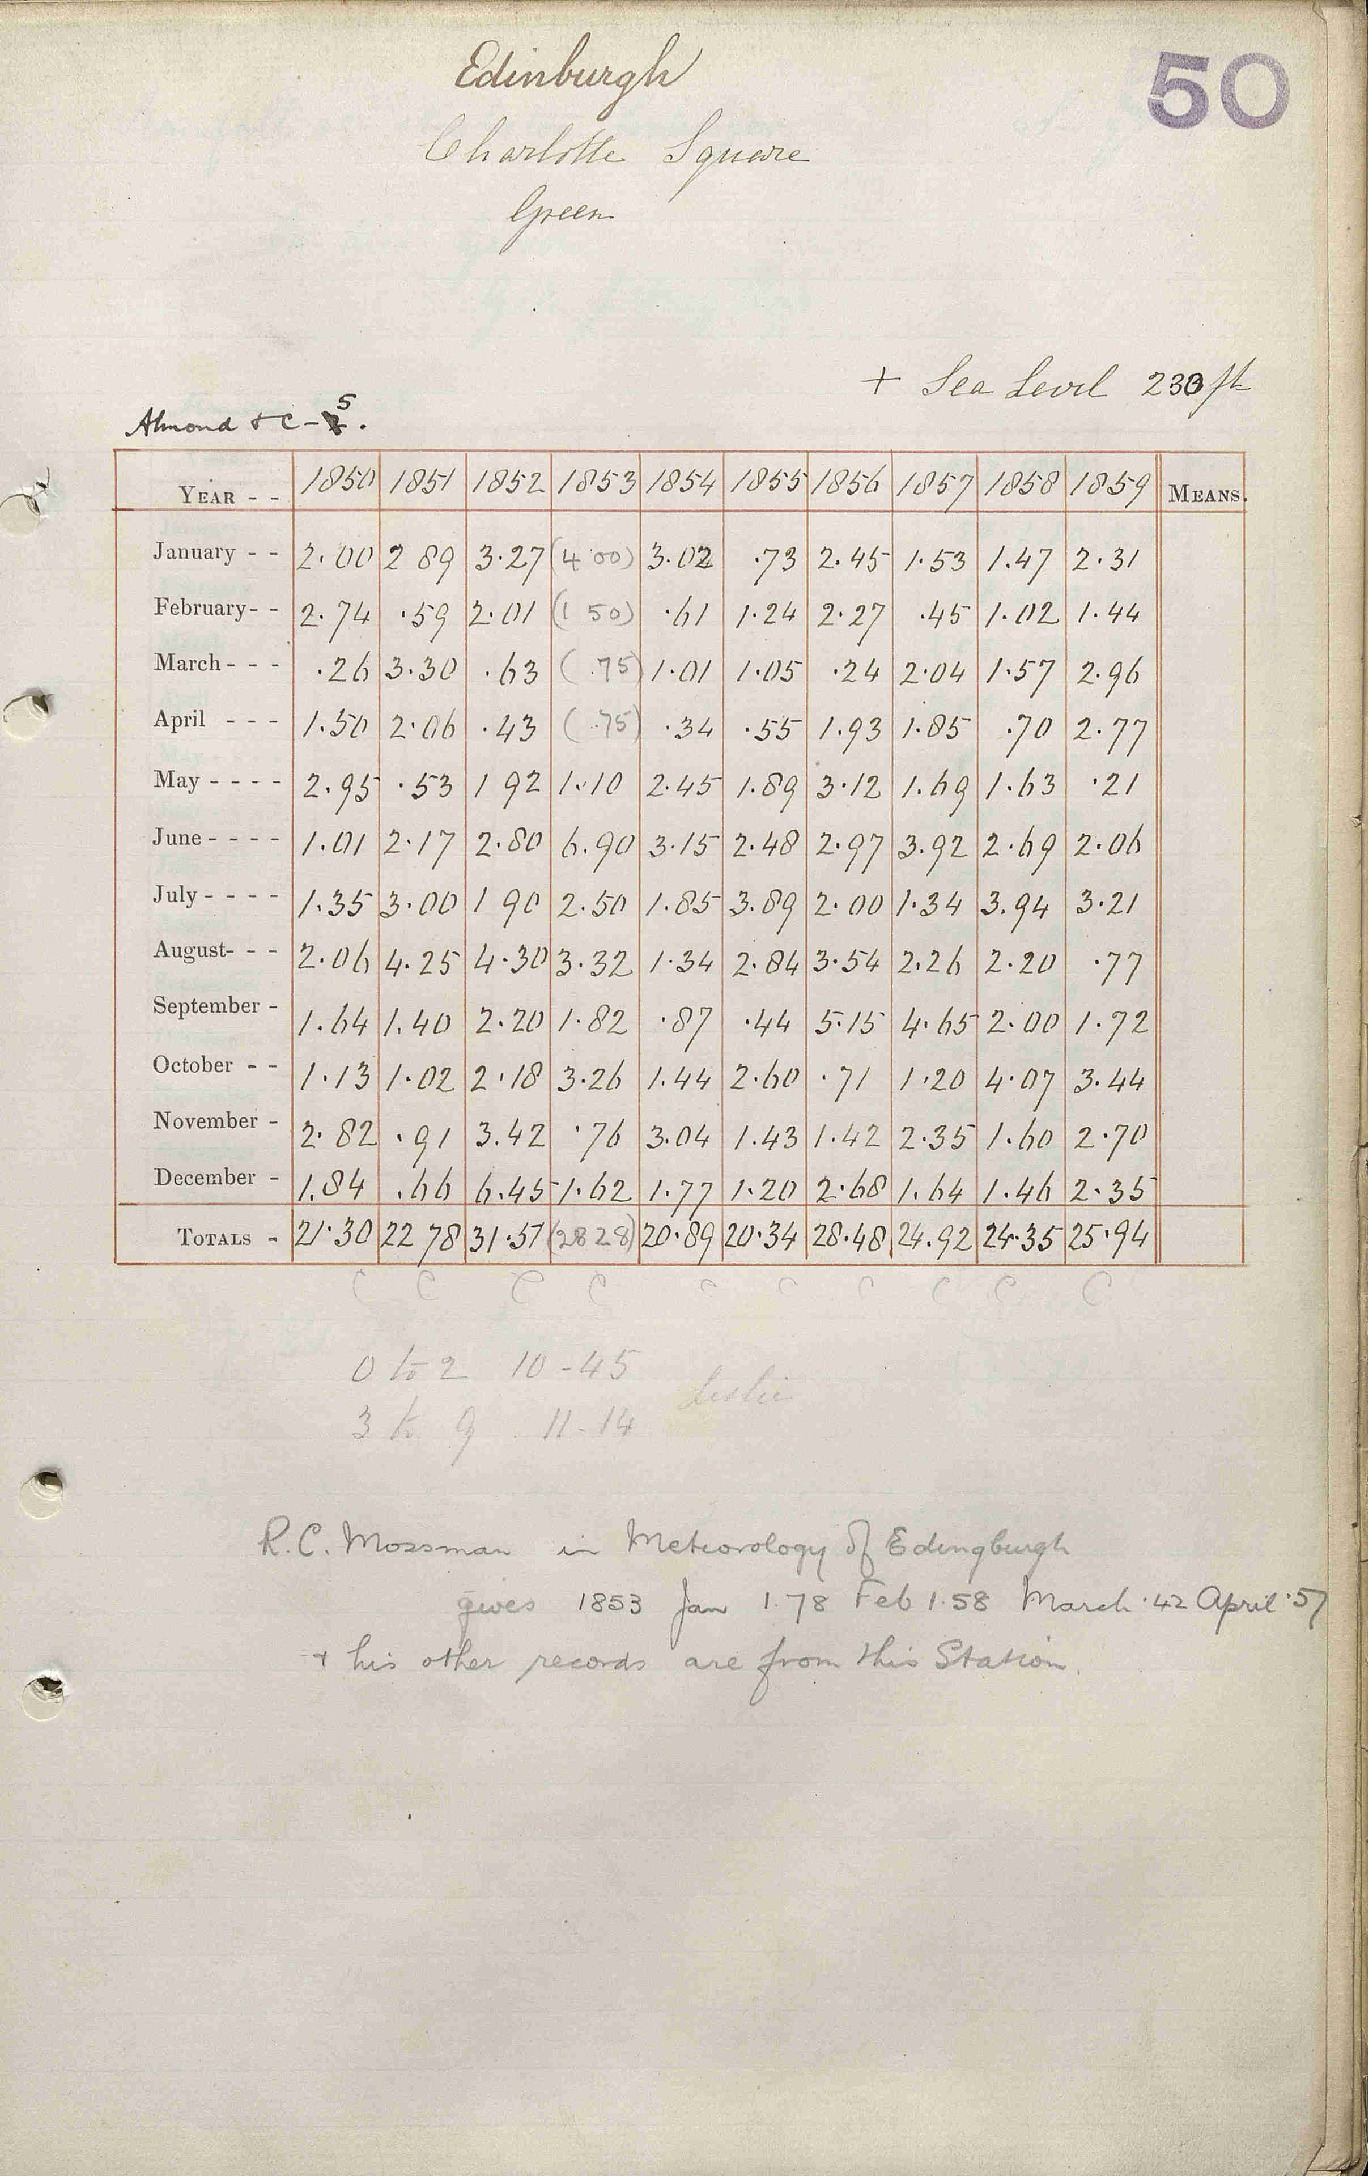 50
Edinburgh
Charlotte Square
Green
+ Sea Level 230 ft
Almond & C - 5.
YEAR - - 1850 1851 1852 1853 1854 1855 1856 1857 1858 1859 MEANS.
January - - 2.00 2 89 3.27 (4 00) 3.02 .73 2.45 1.53 1.47 2.31
February - - 2.74 .59 2.01 (1 50) .61 1.24 2.27 .45 1.02 1.44
March - - - .26 3.30 .63 ( .75) 1.01 1.05 .24 2.04 1.57 2.96
April - - - 1.50 2.06 .43 ( .75) .34 .55 1.93 1.85 .70 2.77
May - - - - 2.95 .53 1 92 1.10 2.45 1.89 3.12 1.69 1.63 .21
June - - - - 1.01 2.17 2.80 6.90 3.15 2.48 2.97 3.92 2.69 2.06
July - - - - 1.35 3.00 1 90 2.50 1.85 3.89 2.00 1.34 3.94 3.21
August - - - 2.06 4.25 4.30 3.32 1.34 2.84 3.54 2.26 2.20 .77
September - 1.64 1.40 2.20 1.82 .87 .44 5.15 4.65 2.00 1.72
October - - 1.13 1.02 2.18 3.26 1.44 2.60 .71 1.20 4.07 3.44
November - 2.82 .91 3.42 .76 3.04 1.43 1.42 2.35 1.60 2.70
December - 1.84 .66 6.45 1.62 1.77 1.20 2.68 1.64 1.46 2.35
TOTALS - 21.30 22 78 31.51 (28 28) 20.89 20.34 28.48 24.92 24.35 25.94
C C C C C C C C C C
0 to 2 10-45
Leslie
3 to 9 11-14
R.C. Mossman in Meteorology of Edingburgh
gives 1853 Jan 1.78 Feb 1.58 March .42 April .57
+ his other records are from this Station.